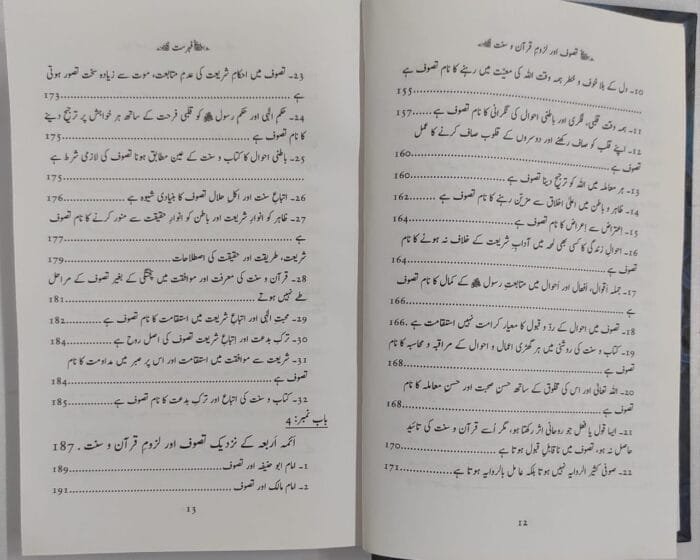 تصوف اور لزوم قرآن و سنت
10- دل کے بلا خوف و خطر ہمہ وقت اللہ کی معیّت میں رہنے کا نام تصوف ہے
155
11- ہمہ وقت قلبی، فکری اور باطنی احوال کی نگرانی کا نام تصوف ہے 157
12- اپنے قلب کو صاف رکھنے اور دوسروں کے قلوب صاف کرنے کا عمل
تصوف ہے 160
13- ہر معاملہ میں اللہ کو ترجیح دینا تصوف ہے 160
14- ظاہر و باطن میں اعلیٰ اخلاق سے مزیّن رہنے کا نام تصوف ہے 162
15- اعتراض سے اِعراض کا نام تصوف ہے 164
16- احوالِ زندگی کا کسی بھی لمحہ میں آدابِ شریعت کے خلاف نہ ہونے کا نام
تصوف ہے 164
17- جملہ اقوال، افعال اور احوال میں متابعتِ رسول ﷺ کے کمال کا نام تصوف
ہے 166
18- تصوف میں احوال کے ردّ و قبول کا معیار کرامت نہیں استقامت ہے 166
19- کتاب و سنت کی روشنی میں ہر گھڑی اعمال و احوال کے مراقبہ و محاسبہ کا نام
تصوف ہے 168
20- اللہ تعالیٰ اور اس کی مخلوق کے ساتھ حسنِ صحبت اور حسنِ معاملہ کا نام
تصوف ہے 168
21- ایسا قول یا فعل جو روحانی اثر رکھتا ہو، مگر اُسے قرآن و سنت کی تائید
حاصل نہ ہو، تصوف میں ناقابلِ قبول ہوتا ہے 170
22- صوفی کثیر الروایہ نہیں ہوتا بلکہ عامل بالروایہ ہوتا ہے 171
12
فہرست
23- تصوف میں احکامِ شریعت کی عدمِ متابعت، موت سے زیادہ سخت تصور ہوتی
ہے 173
24- حکمِ الٰہی اور حکمِ رسول ﷺ کو قلبی فرحت کے ساتھ ہر خواہش پر ترجیح دینے
کا نام تصوف ہے 175
25- باطنی احوال کا کتاب و سنت کے عین مطابق ہونا تصوف کی لازمی شرط ہے
175
26- اتباعِ سنت اور اکلِ حلال تصوف کا بنیادی شیوہ ہے 176
27- ظاہر کو انوارِ شریعت اور باطن کو انوارِ حقیقت سے منور کرنے کا نام تصوف
ہے 177
شریعت، طریقت اور حقیقت کی اصطلاحات 179
28- قرآن و سنت کی معرفت اور موافقت میں پختگی کے بغیر تصوف کے مراحل
طے نہیں ہوتے 181
29- محبتِ الٰہی اور اتباعِ شریعت میں استقامت کا نام تصوف ہے 182
30- ترکِ بدعت اور اتباعِ شریعت تصوف کی اصل روح ہے 184
31- شریعت سے موافقت میں استقامت اور اس پر صبر میں مداومت کا نام
تصوف ہے 184
32- کتاب و سنت کی اتباع اور ترکِ بدعت کا نام تصوف ہے 185
باب نمبر: 4
ائمہ اَربعہ کے نزدیک تصوف اور لزومِ قرآن و سنت 187
1- امام ابو حنیفہ اور تصوف 189
2- امام مالک اور تصوف 191
13